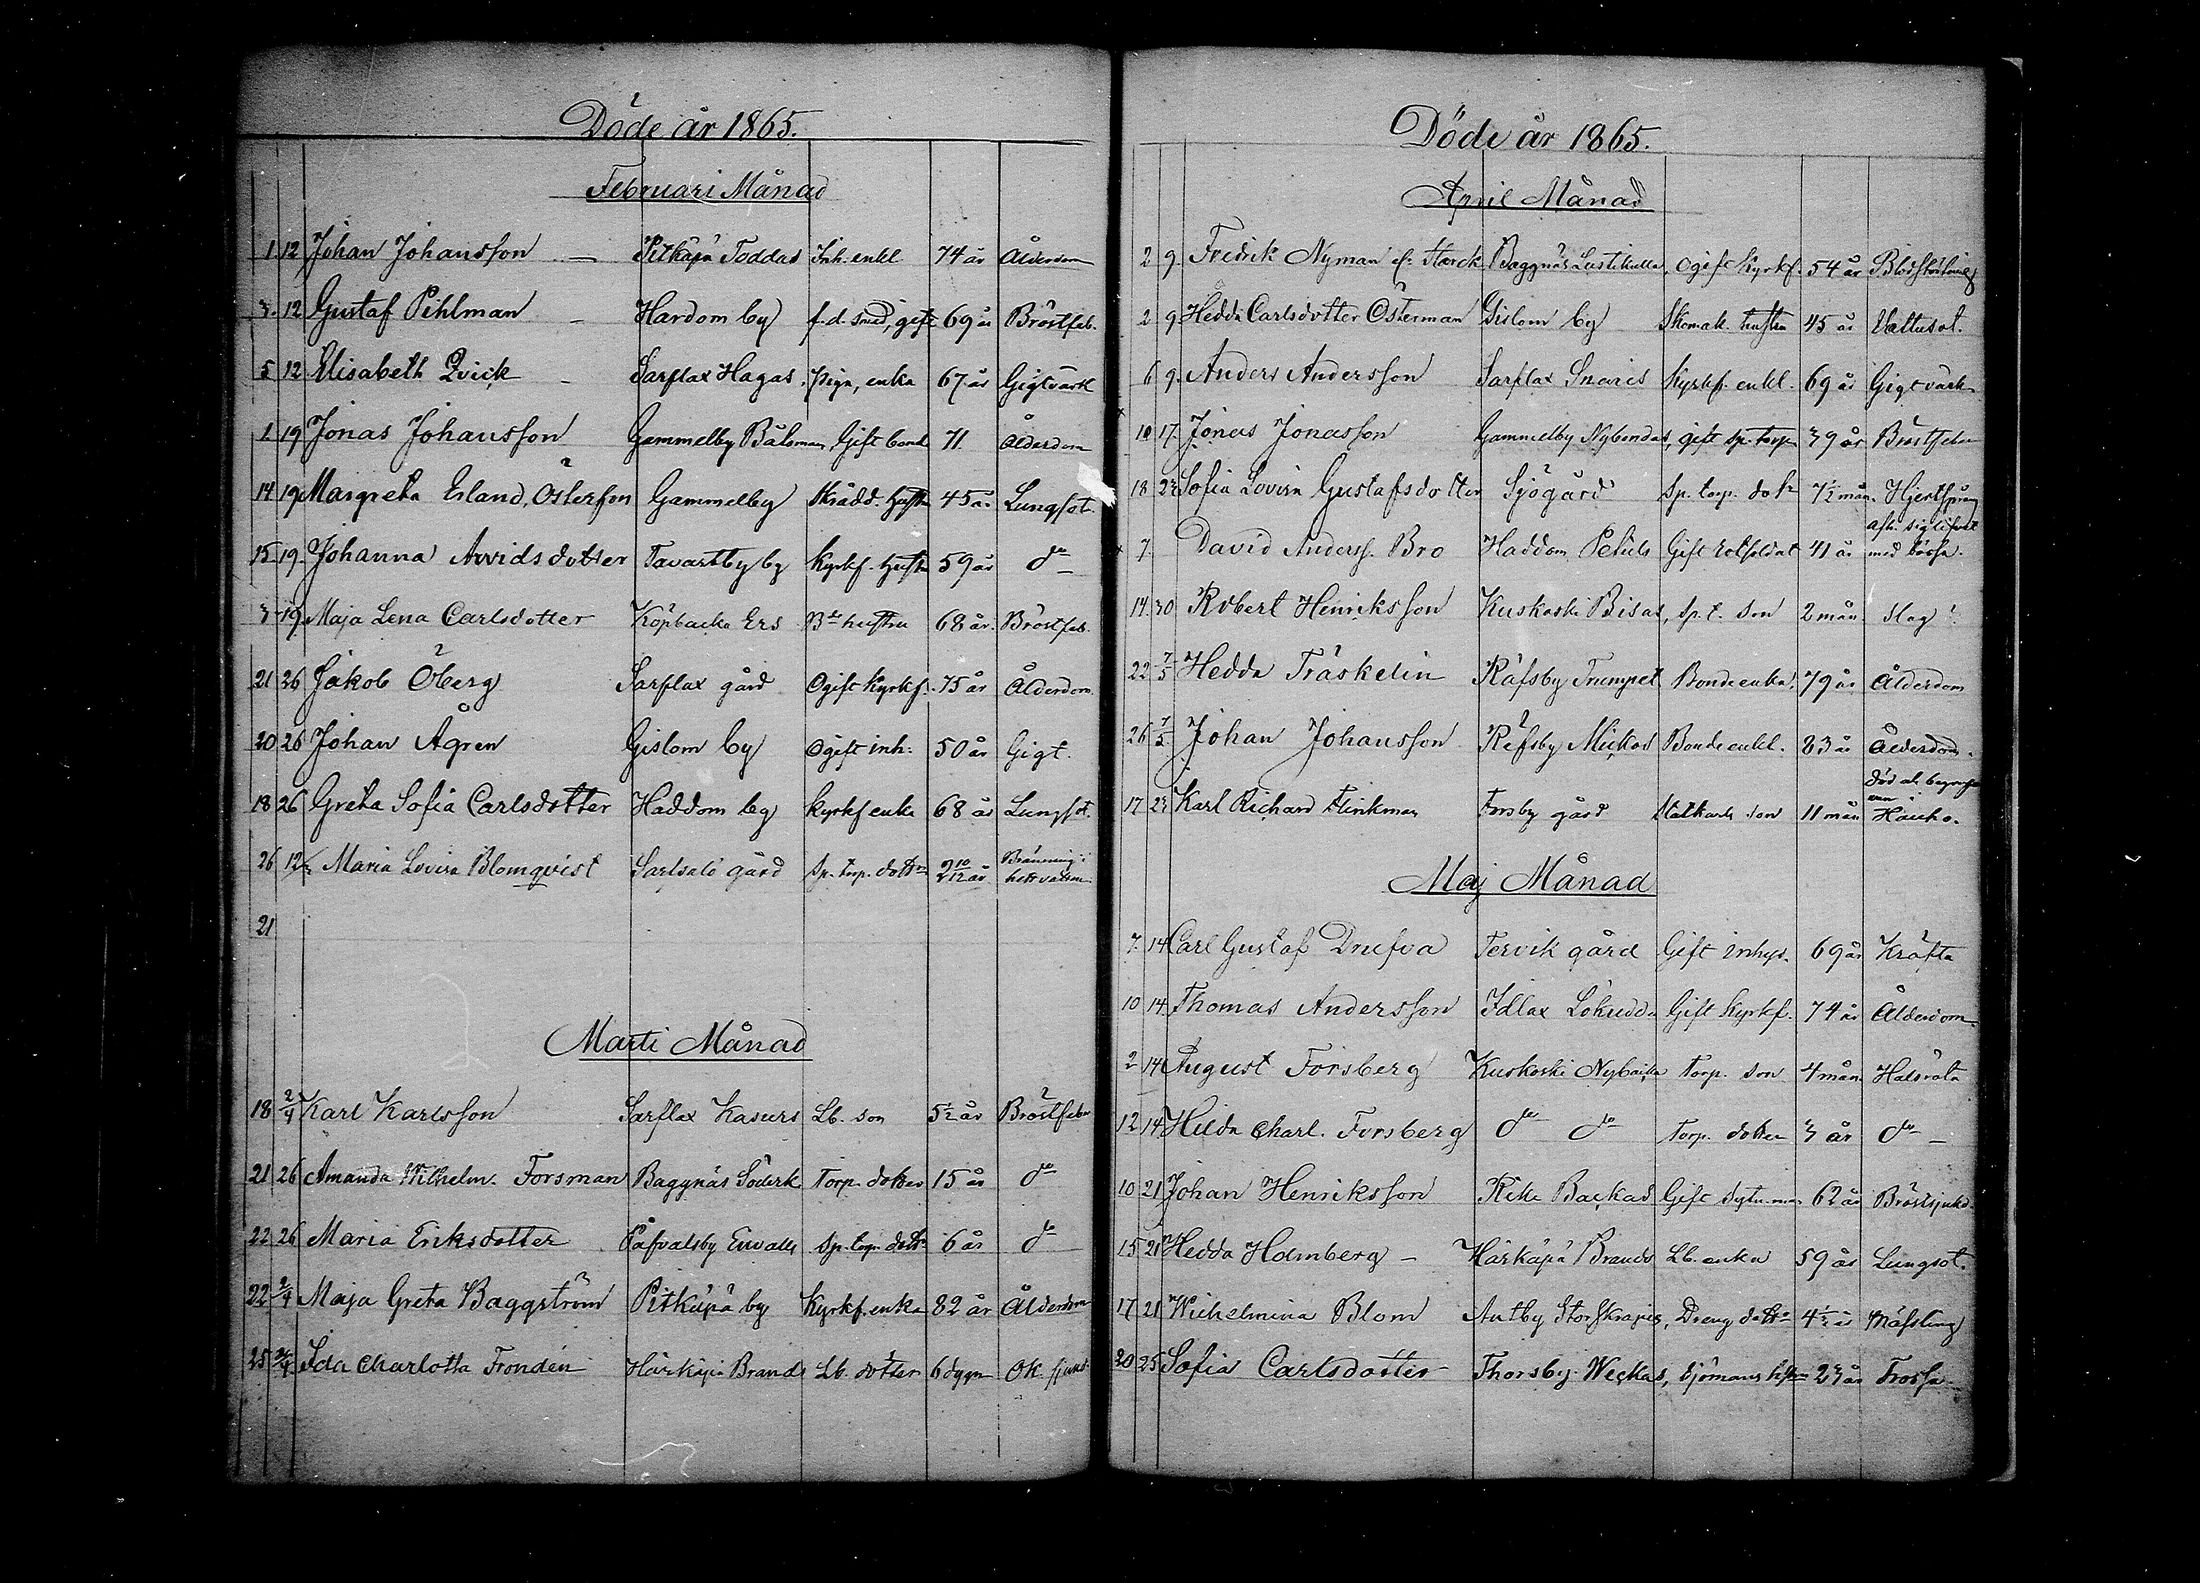 Döde år 1865.
Februari Månad
1. 12 Johan Johansson — Pitkäpä Toddas Inh. enkl 74 år Ålderdom
3. 12 Gustaf Pihlman — Hardom by f. d. smed, gift 69 år Bröstfeb.
5 12 Elisabeth Qvick — Sarflax Hagas, piga, enka 67 år Gigtvärk
1 19 Jonas Johansson Gammelby Bålsman Gift bond 71. Ålderdom
14 19 Margreta Erland. Österson Gammelby Skrädd. hustru 45 år Lungsot.
15. 19. Johanna Arvidsdotter Tavastby by Kyrkf. hustru 59 år do
3 19. Maja Lena Carlsdotter Köpbacka Ers Bde hustru 68 år. Bröstfeb.
21 26 Jakob Öberg Sarflax gård Ogift Kyrkf. 75 år Ålderdom
20 26 Johan Ågren Gislom by Ogift inh: 50 år Gigt.
18 26 Greta Sofia Carlsdotter Haddom by Kyrkf enka 68 år Lungsot.
26 12/ Maria Lovisa Blomqvist Sarlsalö gård Sp. torp. dottr 2 10/12 år Bränning i hett vatten
21
Marti Månad
18 2/4 Karl Karlsson Sarflax Kasurs Lb. son 5½ år Bröstfeber
21 26 Amanda Wilhelm. Forsman Baggnäs Söderk. Torp. dotter 15 år do
22 26 Maria Eriksdotter Påfvalsby Envalls Sp. torp. dottr 6 år do
22 2/4 Maja Greta Baggström Pitkäpä by Kyrkf. enka 82 år Ålderdom
25 /4 Ida Charlotta Frondén Härkäpä Brands Lb. dotter 6 dygn Ok. sjukd
Döde år 1865.
April Månad
2 9. Fredrik Nyman el. Starck Baggnäs Lustikulla, ogift Kyrkf. 54 år Blodstörtning
2 9. Hedda Carlsdotter Österman Gislom by Skomak. hustru 45 år Vattusot.
6 9. Anders Andersson Sarflax Snaris Kyrkf. enkl. 69 år Gigtvärk
10 17. Jonas Jonasson Gammelby Nybondas, gift sp. torp. 39 år Bröstfeber
18 23 Sofia Lovisa Gustafsdotter Sjögård Sp. torp. dotr 7½ mån. Hjertsprång
7. David Anderss. Bro Haddom Petuls Gift rotsoldat 41 år med bössa.
14. 30 Robert Henriksson Kuskoski Bisas, sp. t. son 2 mån Slag
22 7/5 Hedda Träskelin Räfsby Trumpet Bondeenka, 79 år Ålderdom
26 7/5 Johan Johansson Räfsby Mickos Bonde enkl. 83 år Ålderdom.
17 23 Karl Richard Flinkman Forsby gård Statkarls son 11 mån Kikho.
Maj Månad
7. 14 Carl Gustaf Drufva Tervik gård Gift inhys. 69 år Kräfta
10 14. Thomas Andersson Idlax Lökudda Gift Kyrkf. 74 år Ålderdom.
2 14 August Forsberg Kuskoski Nybacka Torp. son 4 mån Halsröta
12 14 Hilda Charl. Forsberg do do Torp. dotter 3 år do —
10 21 Johan Henriksson Rike Backas Gift sytn.man 62 år Bröstsjukd.
15 21 Hedda Holmberg — Härkäpä Brands Lb. enka 59 år Lungsot.
17 21 Wilhelmina Blom Antby Storskrapis, Dreng dottr 4½ år Mässling
20 25 Sofia Carlsdotter Thorsby Weckas, sjömans hstru 23 år Frossa